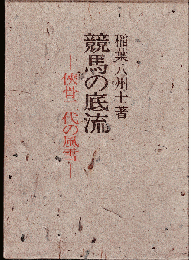 稲葉八州士著
競馬の底流
―侠骨一代の風雪―